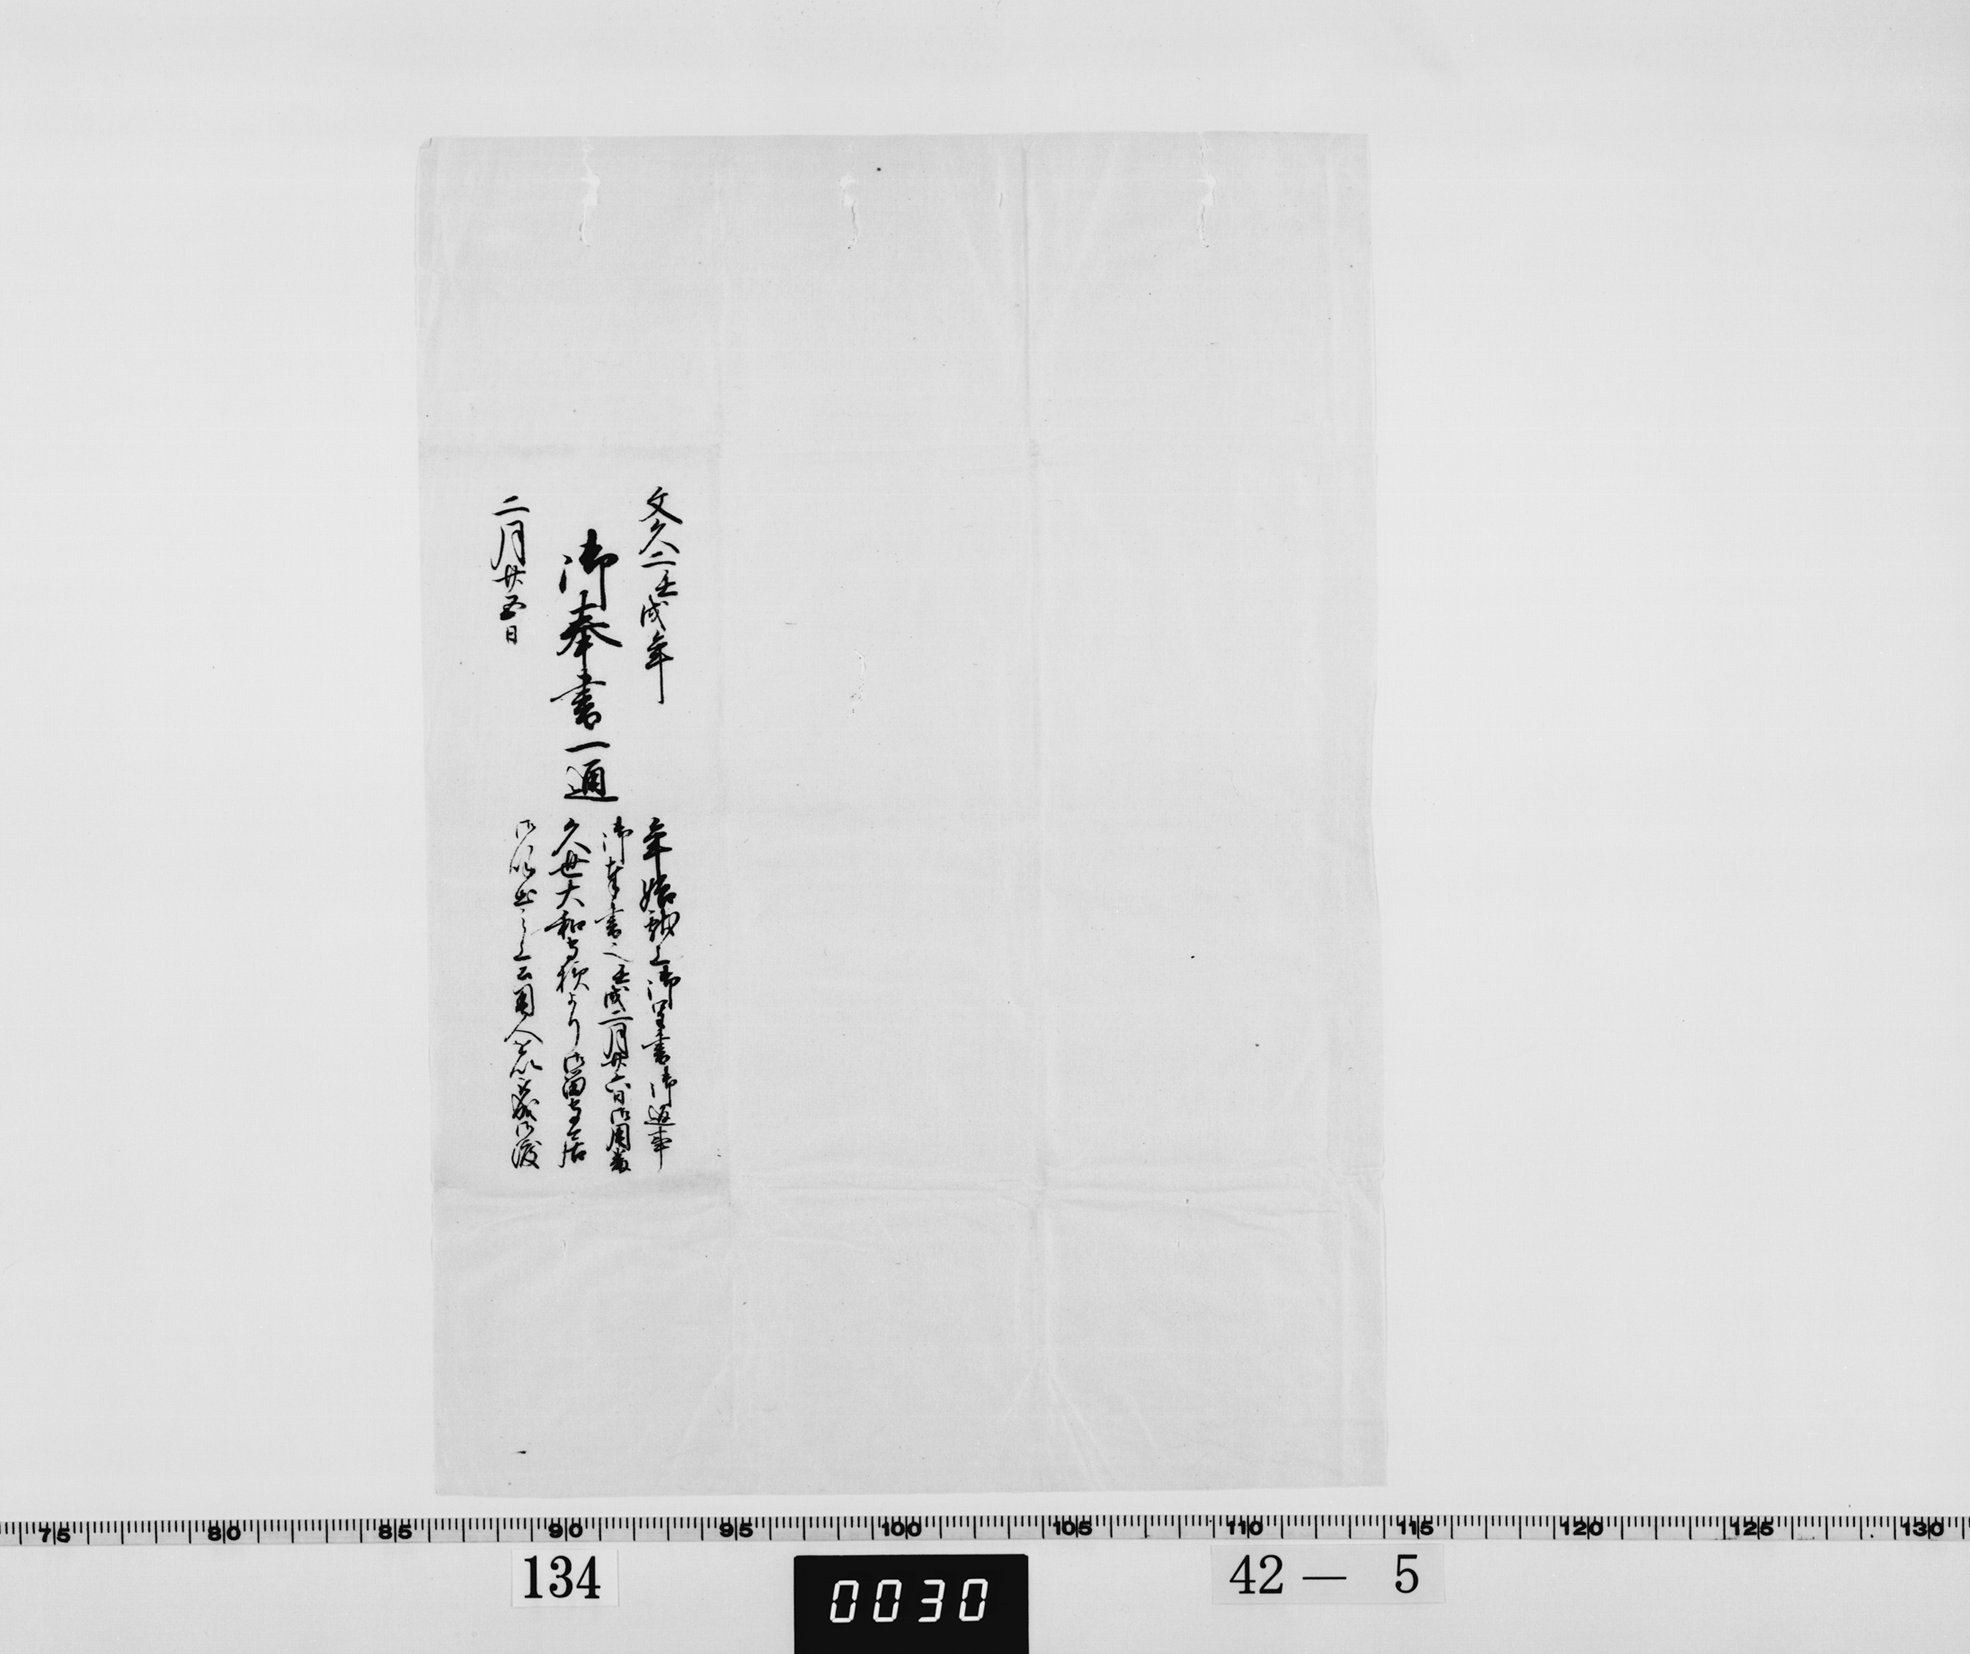 文久二壬戌年
御奉書一通
二月廿五日
年始献上御呈書御返事
御奉書也壬戌二月廿六日御用番
久世大和守様より御留守居
御呼出之上公用人を以御渡
75 80 85 90 95 100 105 110 115 120 125 130
134
0030
42― 5